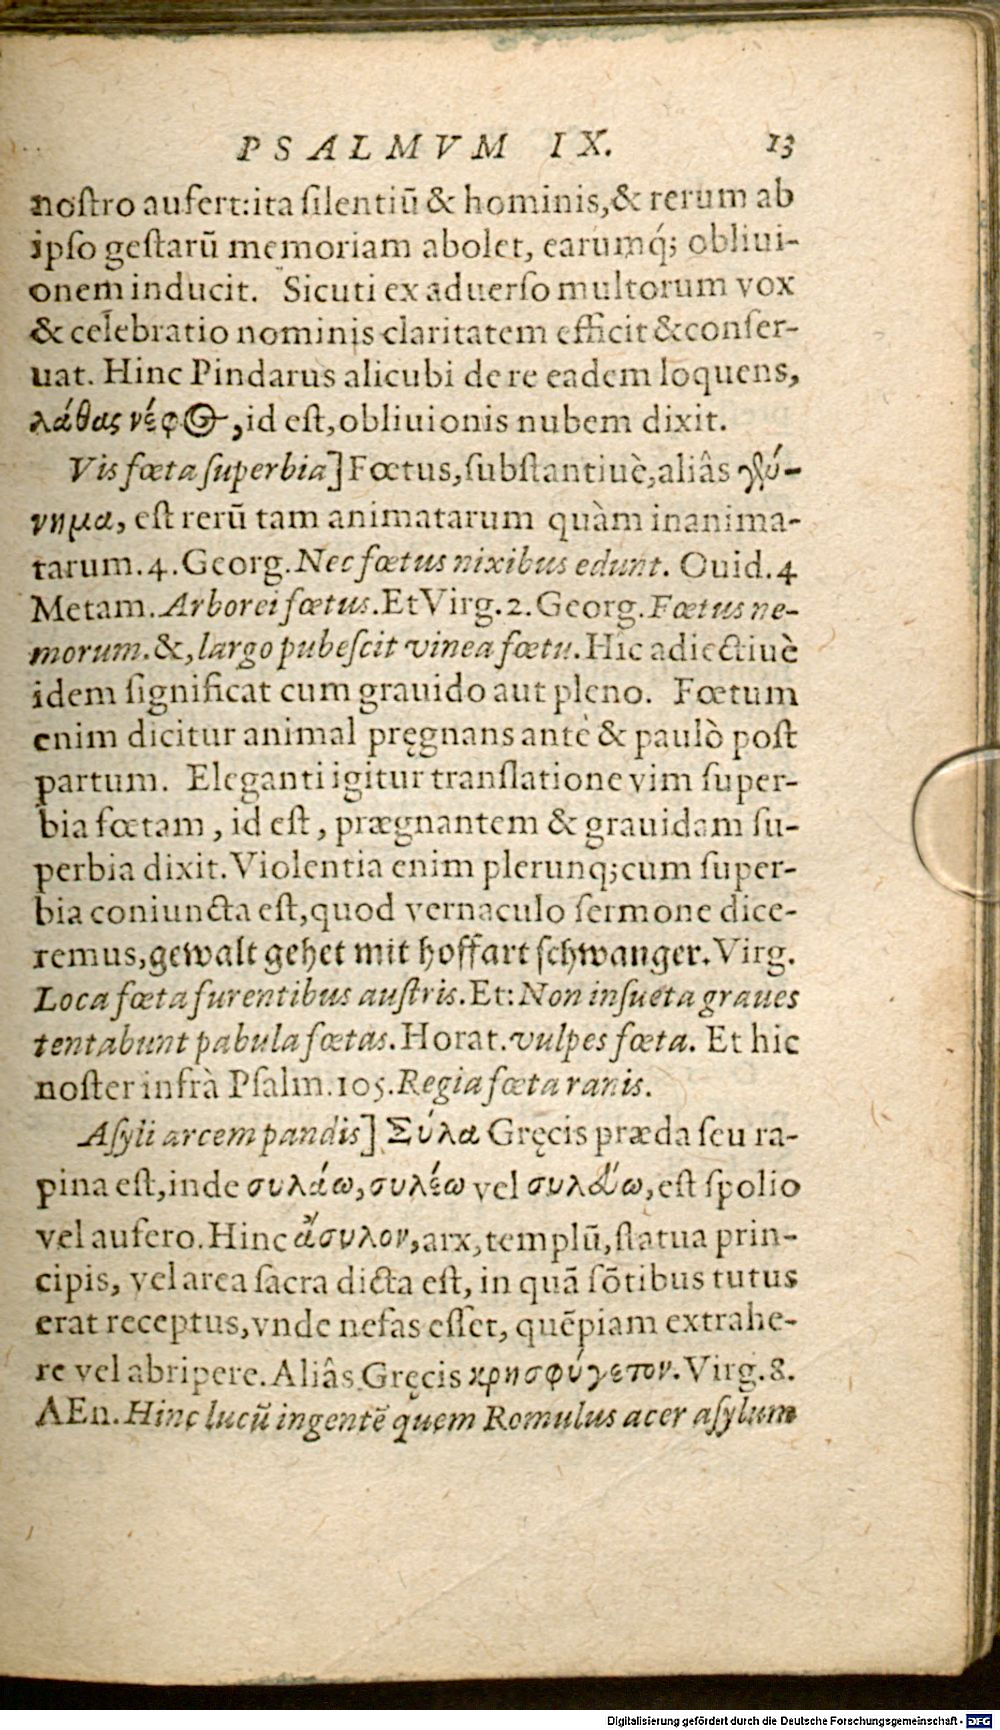 PSALMVM IX. 13
noſtro aufert:ita ſilentiũ & hominis,& rerum ab
ipſo geſtarũ memoriam abolet, earumq́; obliui-
onem inducit. Sicuti ex aduerſo multorum vox
& celebratio nominis claritatem efficit & conſer-
uat. Hinc Pindarus alicubi de re eadem loquens,
λάθας νέφος, id eſt, obliuionis nubem dixit.
Vis fœta ſuperbia] Fœtus, ſubſtantiuè, aliâs γέν-
νημα, eſt rerũ tam animatarum quàm inanima-
tarum. 4. Georg. Nec fœtus nixibus edunt. Ouid. 4
Metam. Arborei fœtus. Et Virg. 2. Georg. Fœtus ne-
morum. &, largo pubeſcit vinea fœtu. Hîc adiectiuè
idem ſignificat cum grauido aut pleno. Fœtum
enim dicitur animal pręgnans antè & paulò poſt
partum. Eleganti igitur translatione vim ſuper-
bia fœtam, id eſt, prægnantem & grauidam ſu-
perbia dixit. Violentia enim plerunq; cum ſuper-
bia coniuncta eſt, quod vernaculo ſermone dice-
remus, gewalt gehet mit hoffart ſchwanger. Virg.
Loca fœta furentibus auſtris. Et: Non inſueta graues
tentabunt pabula fœtas. Horat. vulpes fœta. Et hic
noſter infrà Pſalm. 105. Regia fœta ranis.
Aſyli arcem pandis] Σύλα Gręcis præda ſeu ra-
pina eſt, inde συλάω, συλέω vel συλεύω, eſt ſpolio
vel aufero. Hinc ἄσυλον, arx, templũ, ſtatua prin-
cipis, vel area ſacra dicta eſt, in quã ſõtibus tutus
erat receptus, vnde nefas eſſet, quẽpiam extrahe-
re vel abripere. Aliâs Gręcis κρησφύγετον. Virg. 8.
AEn. Hinc lucũ ingentẽ quem Romulus acer aſylum
Digitalisierung gefördert durch die Deutsche Forschungsgemeinschaft - DFG